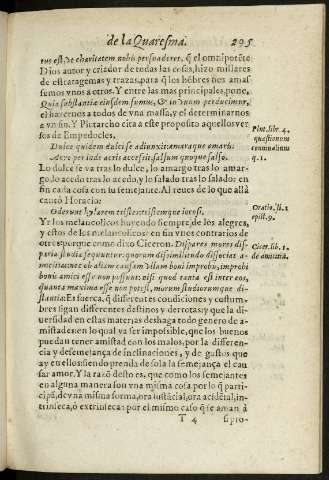 de la Quaresma. 295
tus est, ve charitatem nobis persuaderet, q̃ el omnipotẽte
Dios autor y criador de todas las cosas, hizo millares
de estratagemas y trazas, para q̃ los hõbres nos amas
semos vnos a otros. Y entre las mas principales, pone,
Quia substantia eiusdem sumus, & in vnum perducimur,
el hazernos a todos de vna massa, y el determinarnos
a vn fin. Y Plutarcho cita a este proposito aquellos ver
sos de Empedocles.
Plut. libr. 4.
quæstionum
conuiualium
q. 1.
Dulce quidem dulci se adiunxit amaraque amaris:
Acre per inde acris accessit, salsum quoque salso.
Lo dulce se va tras lo dulce, lo amargo tras lo amar-
go, lo acedo tras lo acedo, y lo salado tras lo salado: en
fin cada cosa con su semejante. Al reues de lo que allà
cantò Horacio:
Oratio. li. 1
epist. 9.
Oderunt hylarem tristes tristemque iocosi.
Y los melancolicos huyendo siempre de los alegres,
y estos de los melancolicos: en fin vnos contrarios de
otros porque como dixo Ciceron. Dispares mores dis-
paria studia sequuntur: quorum dissimilitudo dissociat a-
micitias: nec ob aliam causam vllam boni improbis, improbi
bonis amici esse non possunt: nisi quod tanta est inter eos,
quanta maxima esse non potest, morum studiorumque di-
stantia. Es fuerça, q̃ diferentes condiciones y costum-
Cicer. lib. 1.
de amicitia.
bres sigan diferentes destinos y derrotas: y que la di-
uersidad en estas materias deshaga todo genero de a-
mistades: en lo qual va ser impossible, que los buenos
puedan tener amistad con los malos, por la diferen-
cia y desemejança de inclinaciones, y de gustos que
ay en ellos: siendo prenda de sola la semejança el cau
sar amor. Y la razõ desto es, que como los semejantes
en alguna manera son vna misma cosa, por lo q̃ parti-
cipã, de vna misma forma, ora sustãcial, ora acidẽtal, in-
trinseca, ò extrinseca: por el mismo caso q̃ se aman à
T 4 si pro-